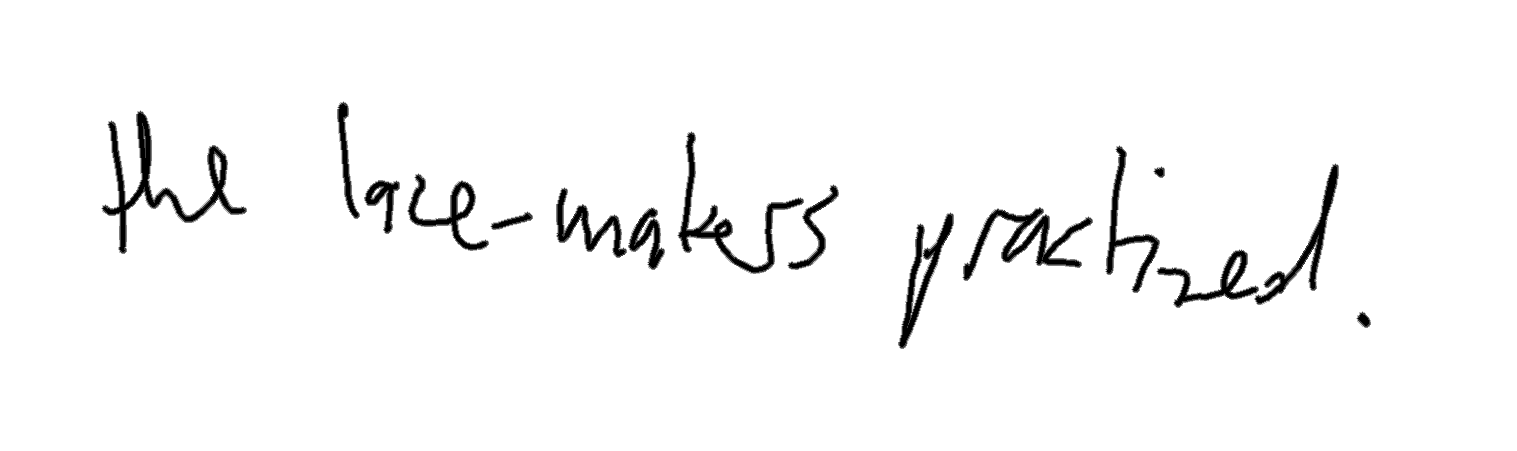 the lace-makers practized.